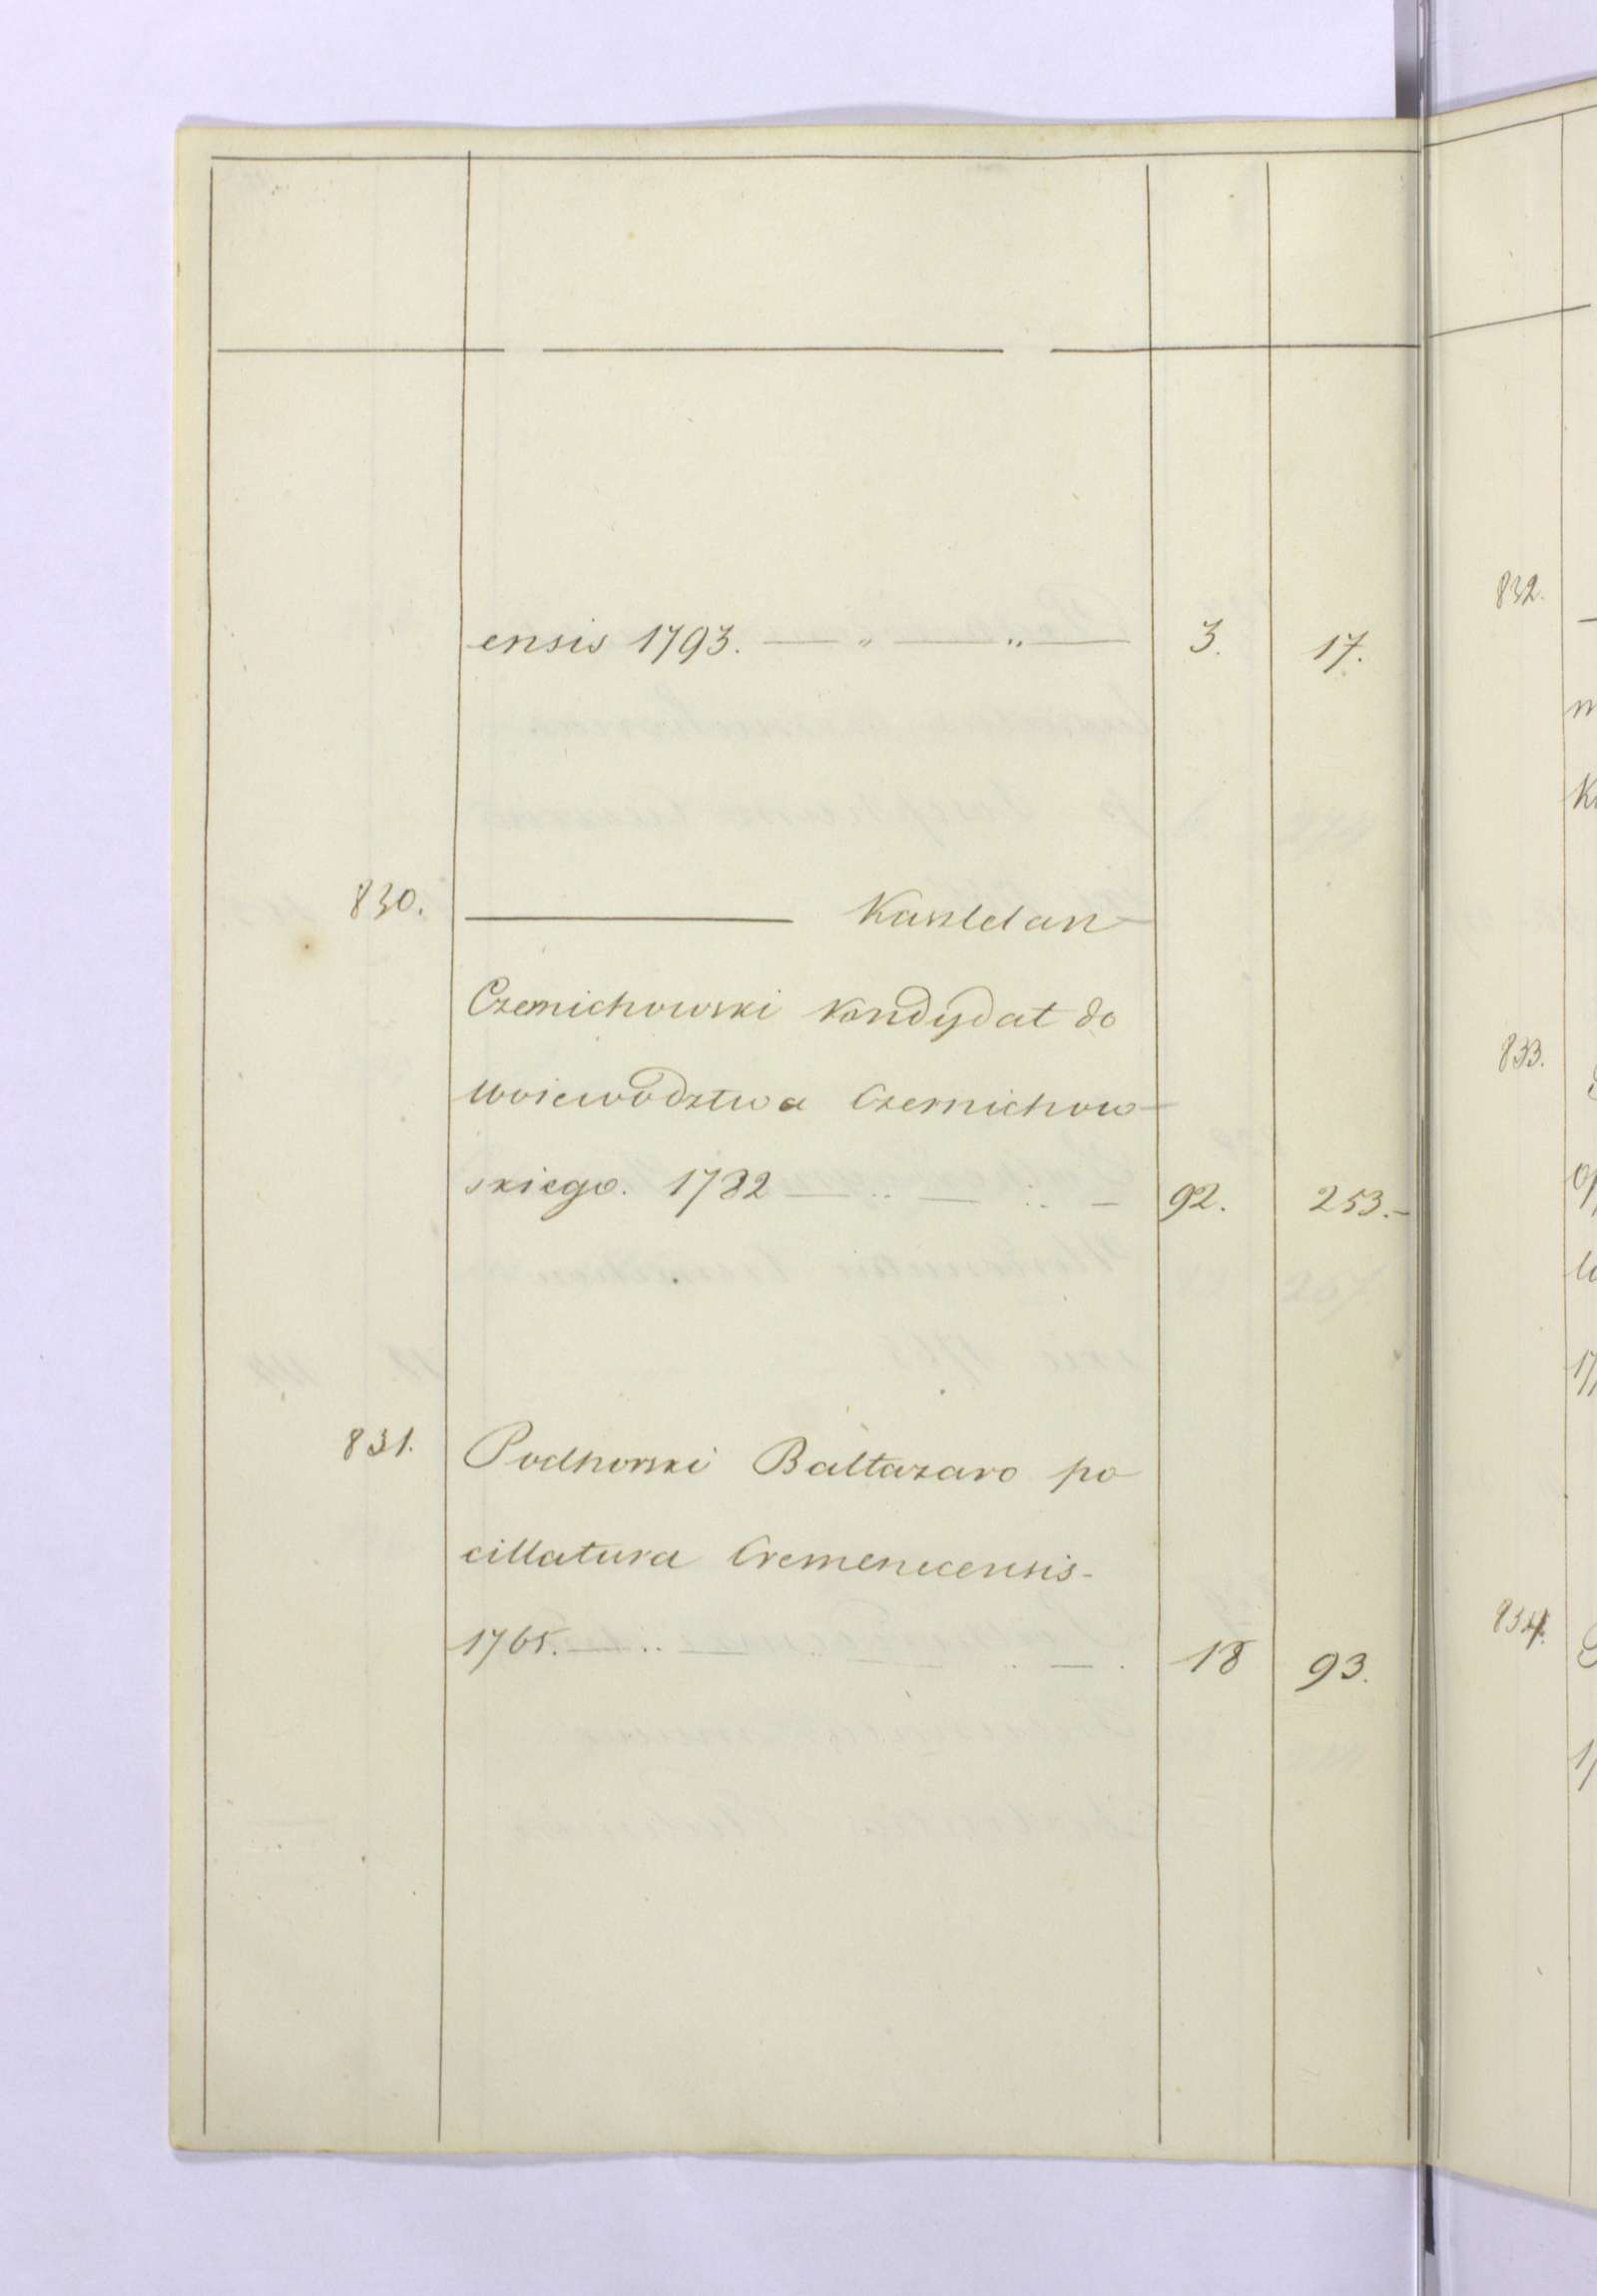 ensis 1793. — " — " — 3. 17.
830. ——— Kasztelan
Czernichowski Kandydat do
Woiewodztwa Czernichow-
skiego. 1782 — .. — .. — 92. 253.-
831. Podhorski Baltazaro po
cillatura Cremenecensis-
1765. — .. — .. — .. — . 18 93.
832.
833.
834.